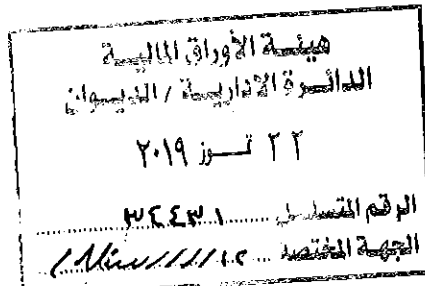 هيئة الأوراق المالية
الدائرة الادارية / الديوان
٢٢ تموز ٢٠١٩
الرقم المتسلسل ٣٤٤٣١
الجهة المختصة